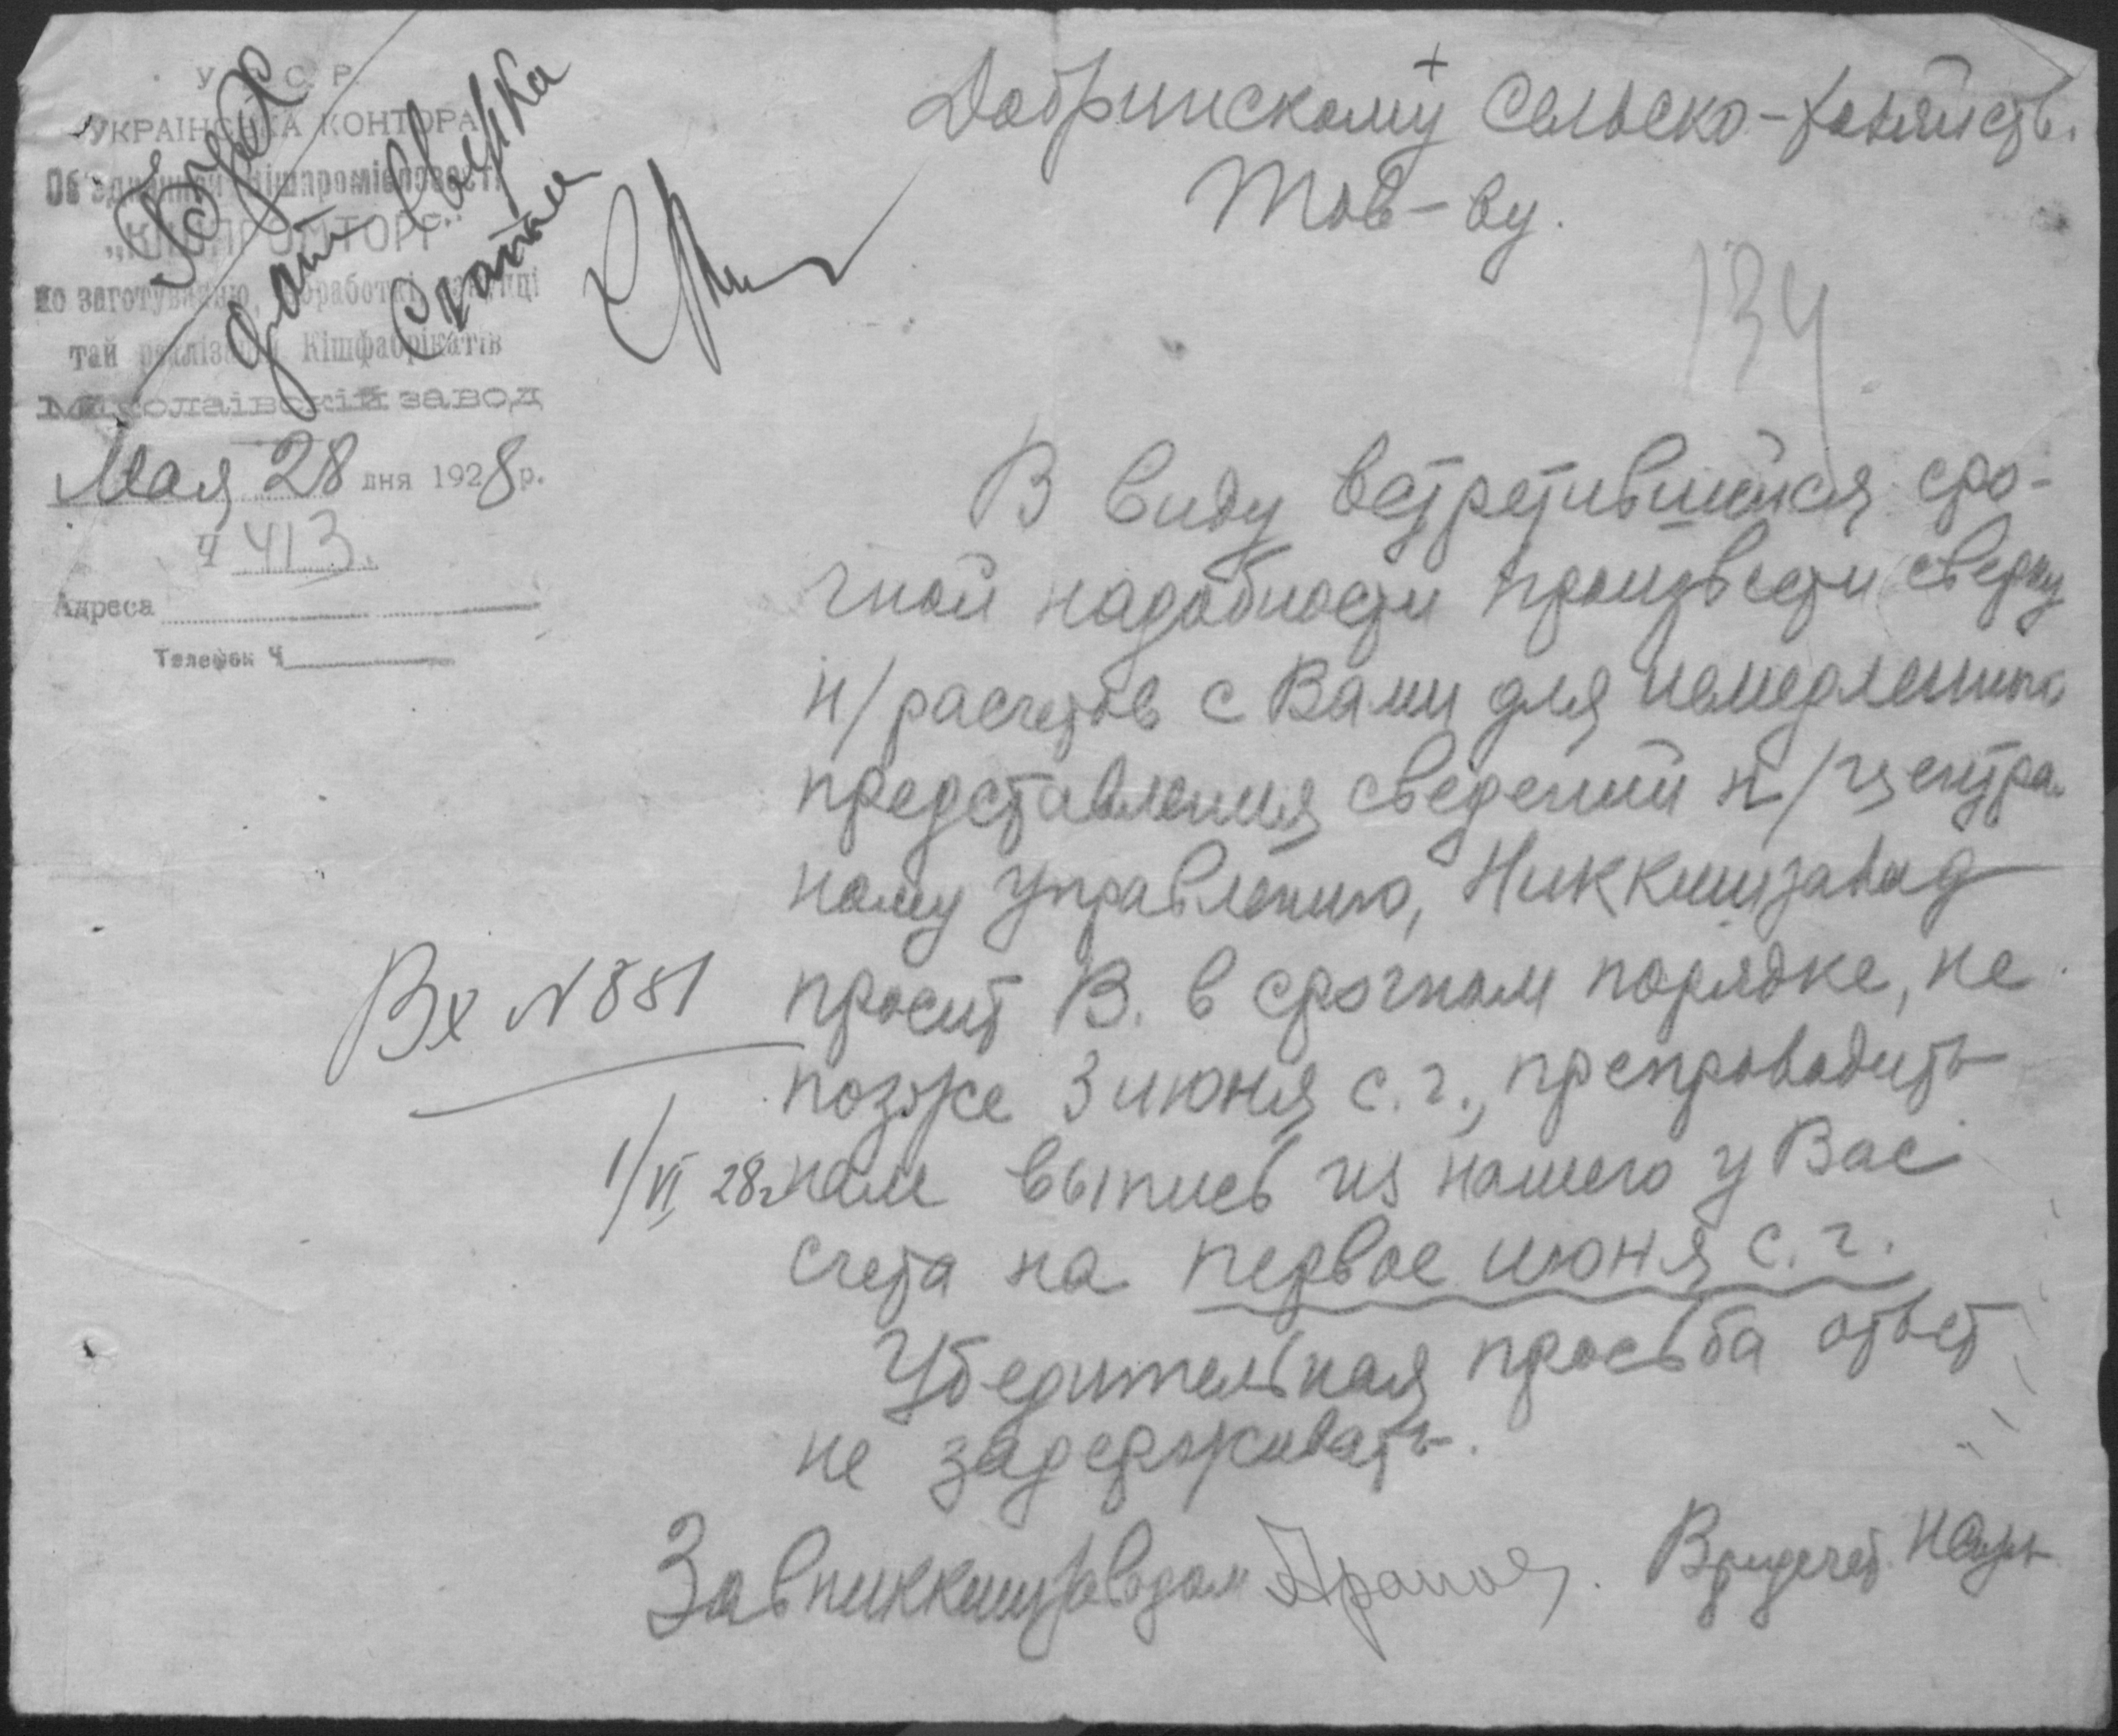 У. С. С. Р.
УКРАІНСЬКА КОНТОРА
Об'еднанной кішпромісловості
„КИШПРОМТОРГ"
по заготуванню, обработкі
тай реалізації Кішфабрікатів
Міколаівскій завод
Мая 28 дня 1928 р.
Ч 413.
Адреса
Телефон Ч
Бух
дать сверка
счетам
Добринскому сельско-хозяйств.
Тов-ву.
134
В виду встретившейся сро-
чной надобности произвести сверку
н/расчетов с Вами для немедленного
представления сведений н/центра
ному управлению, Никкишзавод
просит В. в срочном порядке, не
позже 3 июня с. г., препроводить
нам выпись из нашего у Вас
счета на первое июня с. г.
Убедительная просьба ответ
не задерживать.
Вх N 881
1/VI 28г
Завниккишзаводом